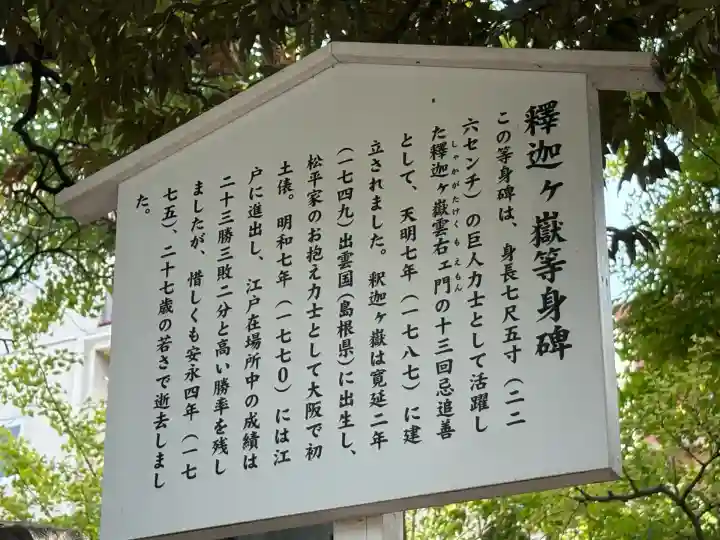 釋迦ヶ嶽等身碑
この等身碑は、身長七尺五寸（二二
六センチ）の巨人力士として活躍し
た釋迦ヶ嶽雲右ェ門の十三回忌追善
しゃかがたけくもえもん
として、天明七年（一七八七）に建
立されました。釈迦ヶ嶽は寛延二年
（一七四九）出雲国（島根県）に出生し、
松平家のお抱え力士として大阪で初
土俵。明和七年（一七七０）には江
戸に進出し、江戸在場所中の成績は
二十三勝三敗二分と高い勝率を残し
ましたが、惜しくも安永四年（一七
七五）、二十七歳の若さで逝去しまし
た。